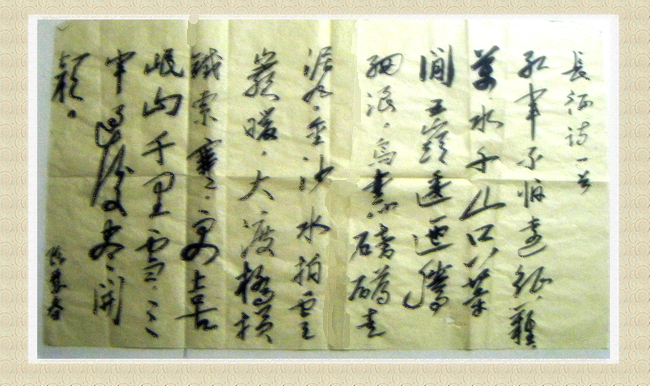 長征詩一首
紅軍不怕遠征難
萬水千山只等
閒五嶺逶迤騰
細浪烏蒙磅礴走
泥丸金沙水拍雲
崖暖大渡橋橫
鐵索寒更喜
岷山千里雪三
軍過後盡開
顏。